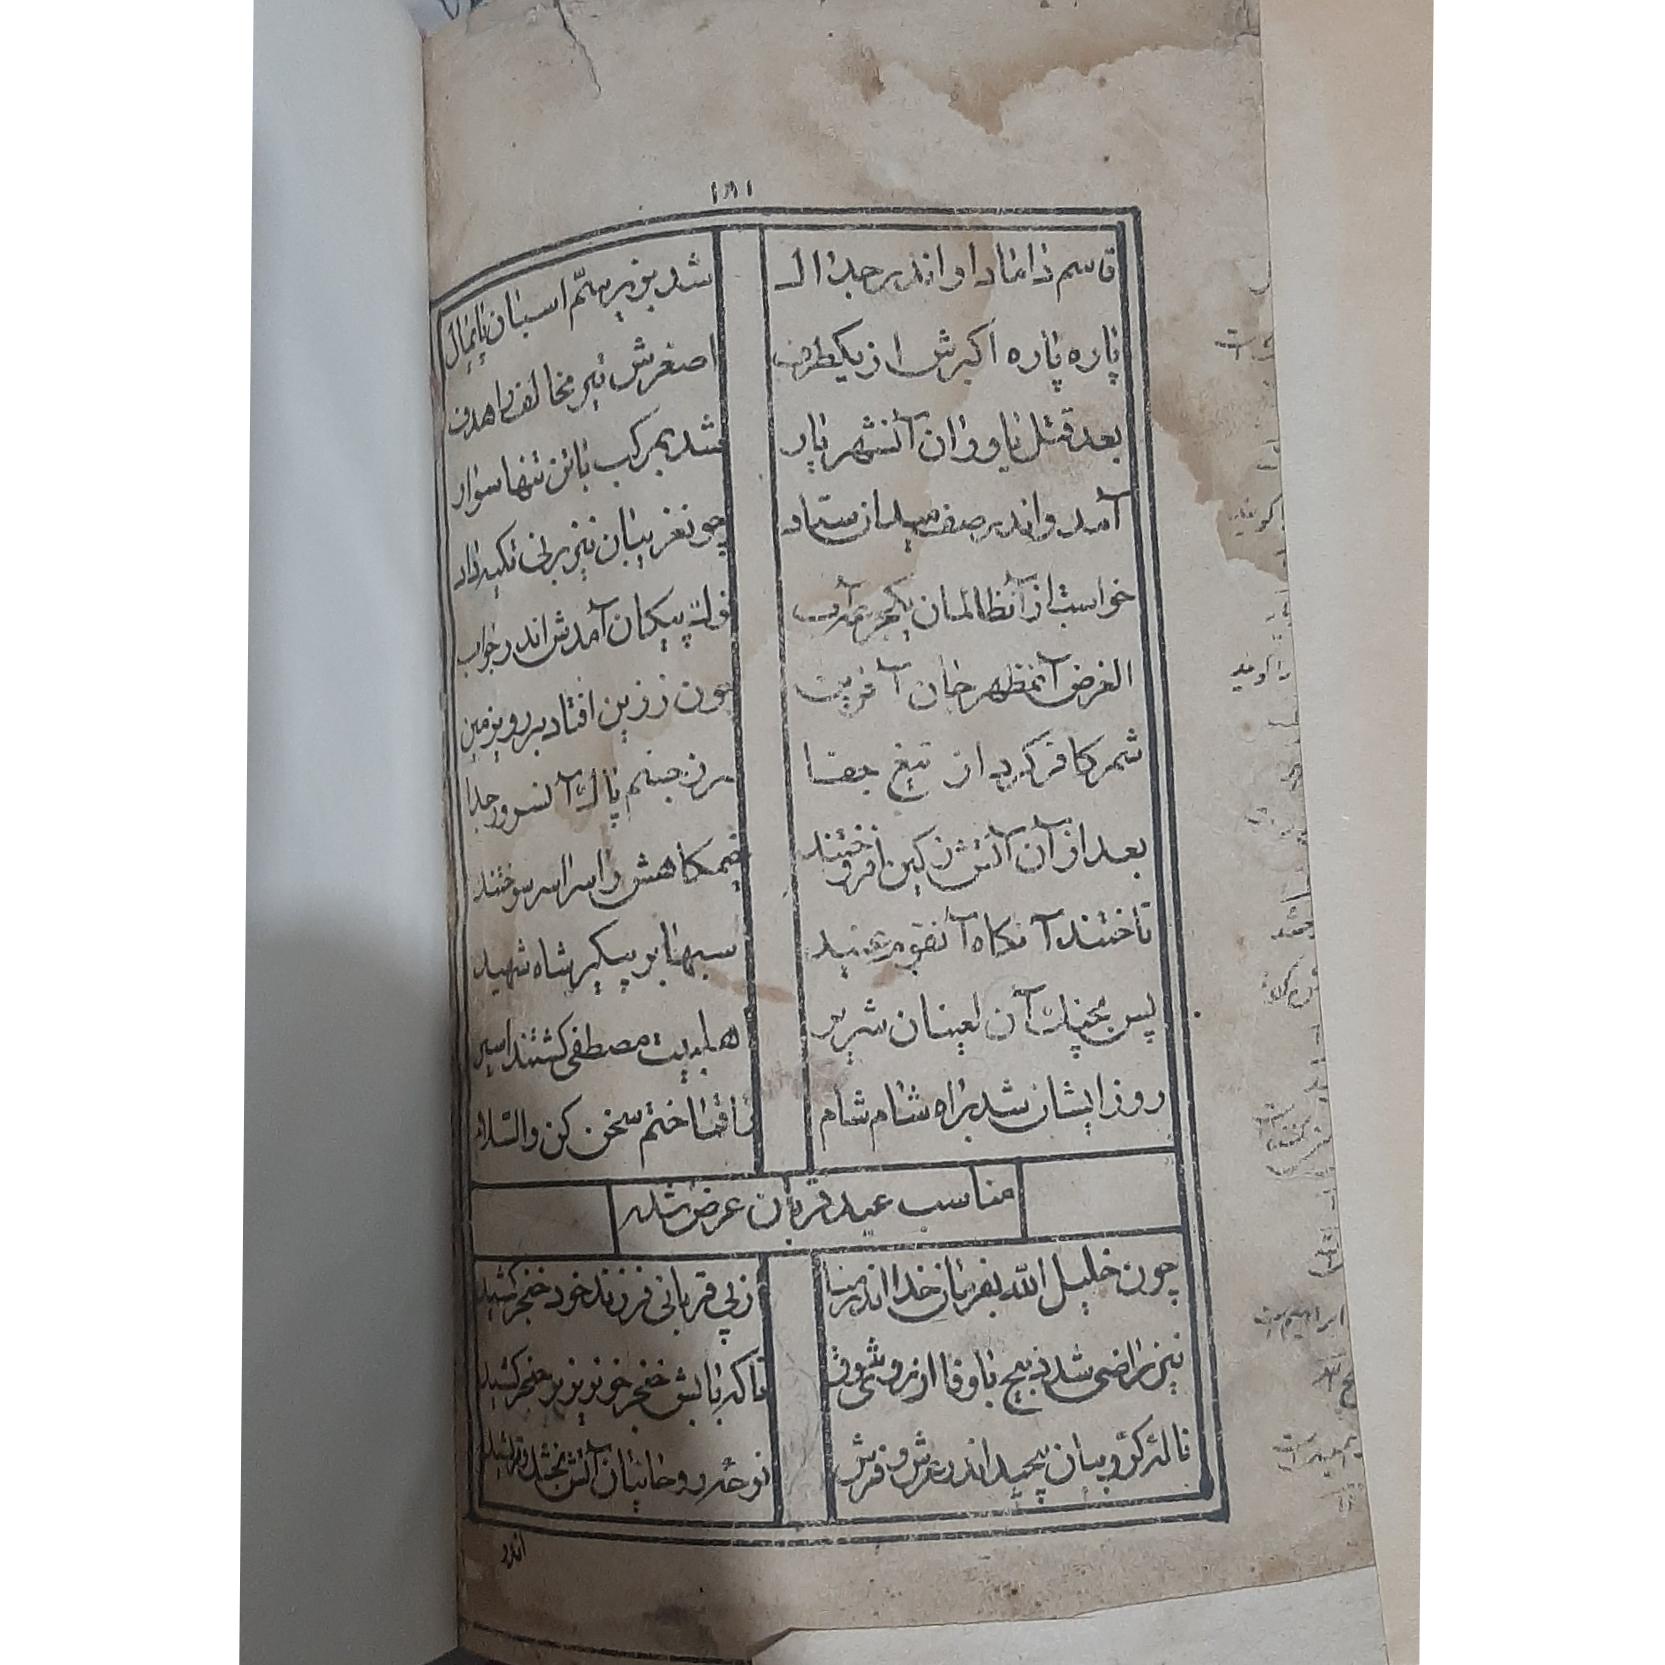 ۱۸۱
قاسم داماد او اندر جدال
شد بزیر سمّ اسبان پایمال
پاره پاره اکبرش از یکطرف
اصغرش تیر مخالف را هدف
بعد قتل یاوران آنشهریار
شد بمرکب با تن تنها سوار
آمد و اندر صف میدان ستاد
چو نغریبان نیزه بر نی تکیه داد
خواست از آنظالمان یکجرعه آب
نوک پیکان آمدش اندر جواب
الغرض آنمظهر جان آفرین
چون ز زین افتاد بر روی زمین
شمر کافر کرد از تیغ جفا
سر ز جسم پاک آنسرور جدا
بعد از آن آتش ز کین افروختند
خیمکاهش را سراسر سوختند
تاختند آنکاه آنقوم عنید
اسبها بر پیکر شاه شهید
پس بچنک آن لعینان شریر
اهلبیت مصطفی کشتند اسیر
روز ایشان شد براه شام شام
ختم سخن کن والسّلام
مناسب عید قربان عرض شد
چون خلیل الله بفرمان خدا اندر منا
از پی قربانی فرزند خود خنجر کشید
نیز راضی شد ذبیح باوفا از روی شوق
تا که بابش خنجر خونریز بر حنجر کشید
ناله کرّوبیان پیچید اندر عرش و فرش
نوحه روحانیان آتش
اندر